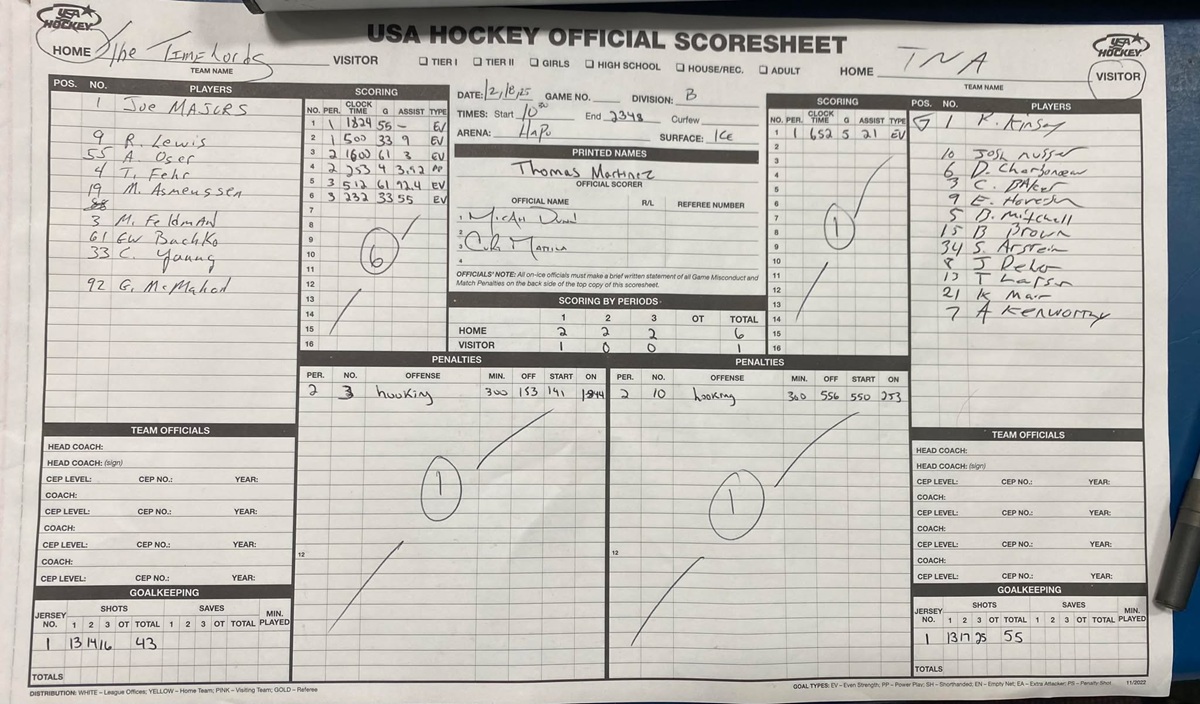 USA HOCKEY OFFICIAL SCORESHEET
USA HOCKEY
HOME The Timelords
TEAM NAME
VISITOR ☐ TIER I ☐ TIER II ☐ GIRLS ☐ HIGH SCHOOL ☐ HOUSE/REC. ☐ ADULT HOME
TNA
TEAM NAME
USA HOCKEY
VISITOR
POS. NO. PLAYERS
1 Joe MAJORS
9 R. Lewis
55 A. Oser
4 T. Fehr
19 M. Asmussen
3 M. Feldman
61 EW Bachko
33 C. Young
92 G. McMahon
SCORING
NO. PER. CLOCK TIME G ASSIST TYPE
1 1 1824 55 - EV
2 1 500 33 9 EV
3 2 1600 61 3 EV
4 2 253 4 3,92 PP
5 3 512 61 92,4 EV
6 3 232 33 55 EV
7
8
9
10
11
12
13
14
15
16
6
DATE: 12,18,25 GAME NO. DIVISION: B
TIMES: Start 10 End 2348 Curfew
ARENA: HAPO SURFACE: ICE
PRINTED NAMES
Thomas Martinez
OFFICIAL SCORER
OFFICIAL NAME R/L REFEREE NUMBER
1 Micah
2
3
4
OFFICIALS' NOTE: All on-ice officials must make a brief written statement of all Game Misconduct and
Match Penalties on the back side of the top copy of this scoresheet.
SCORING BY PERIODS
1 2 3 OT TOTAL
HOME 2 2 2 6
VISITOR 1 0 0 1
SCORING
NO. PER. CLOCK TIME G ASSIST TYPE
1 1 652 5 21 EV
2
3
4
5
6
7
8
9
10
11
12
13
14
15
16
1
POS. NO. PLAYERS
G 1 R. Kinsey
10 Josh
6 D. Charboneau
3 C. BAker
9 E.
5 B. Mitchell
15 B Brown
34 S. Arstein
8 J
13 T Larson
21 K Mair
7 A KENWORTHY
PENALTIES
PER. NO. OFFENSE MIN. OFF START ON
2 3 hooking 300 153 141
1
12
PENALTIES
PER. NO. OFFENSE MIN. OFF START ON
2 10 hooking 300 556 550 253
1
12
TEAM OFFICIALS
HEAD COACH:
HEAD COACH: (sign)
CEP LEVEL: CEP NO.: YEAR:
COACH:
CEP LEVEL: CEP NO.: YEAR:
COACH:
CEP LEVEL: CEP NO.: YEAR:
COACH:
CEP LEVEL: CEP NO.: YEAR:
GOALKEEPING
JERSEY NO. SHOTS 1 2 3 OT TOTAL SAVES 1 2 3 OT TOTAL MIN. PLAYED
1 13 14 16 43
TOTALS
TEAM OFFICIALS
HEAD COACH:
HEAD COACH: (sign)
CEP LEVEL: CEP NO.: YEAR:
COACH:
CEP LEVEL: CEP NO.: YEAR:
COACH:
CEP LEVEL: CEP NO.: YEAR:
COACH:
CEP LEVEL: CEP NO.: YEAR:
GOALKEEPING
JERSEY NO. SHOTS 1 2 3 OT TOTAL SAVES 1 2 3 OT TOTAL MIN. PLAYED
1 13 17 25 55
TOTALS
DISTRIBUTION: WHITE – League Offices; YELLOW – Home Team; PINK – Visiting Team; GOLD – Referee
GOAL TYPES: EV – Even Strength; PP – Power Play; SH – Shorthanded; EN – Empty Net; EA – Extra Attacker; PS – Penalty Shot 11/2022